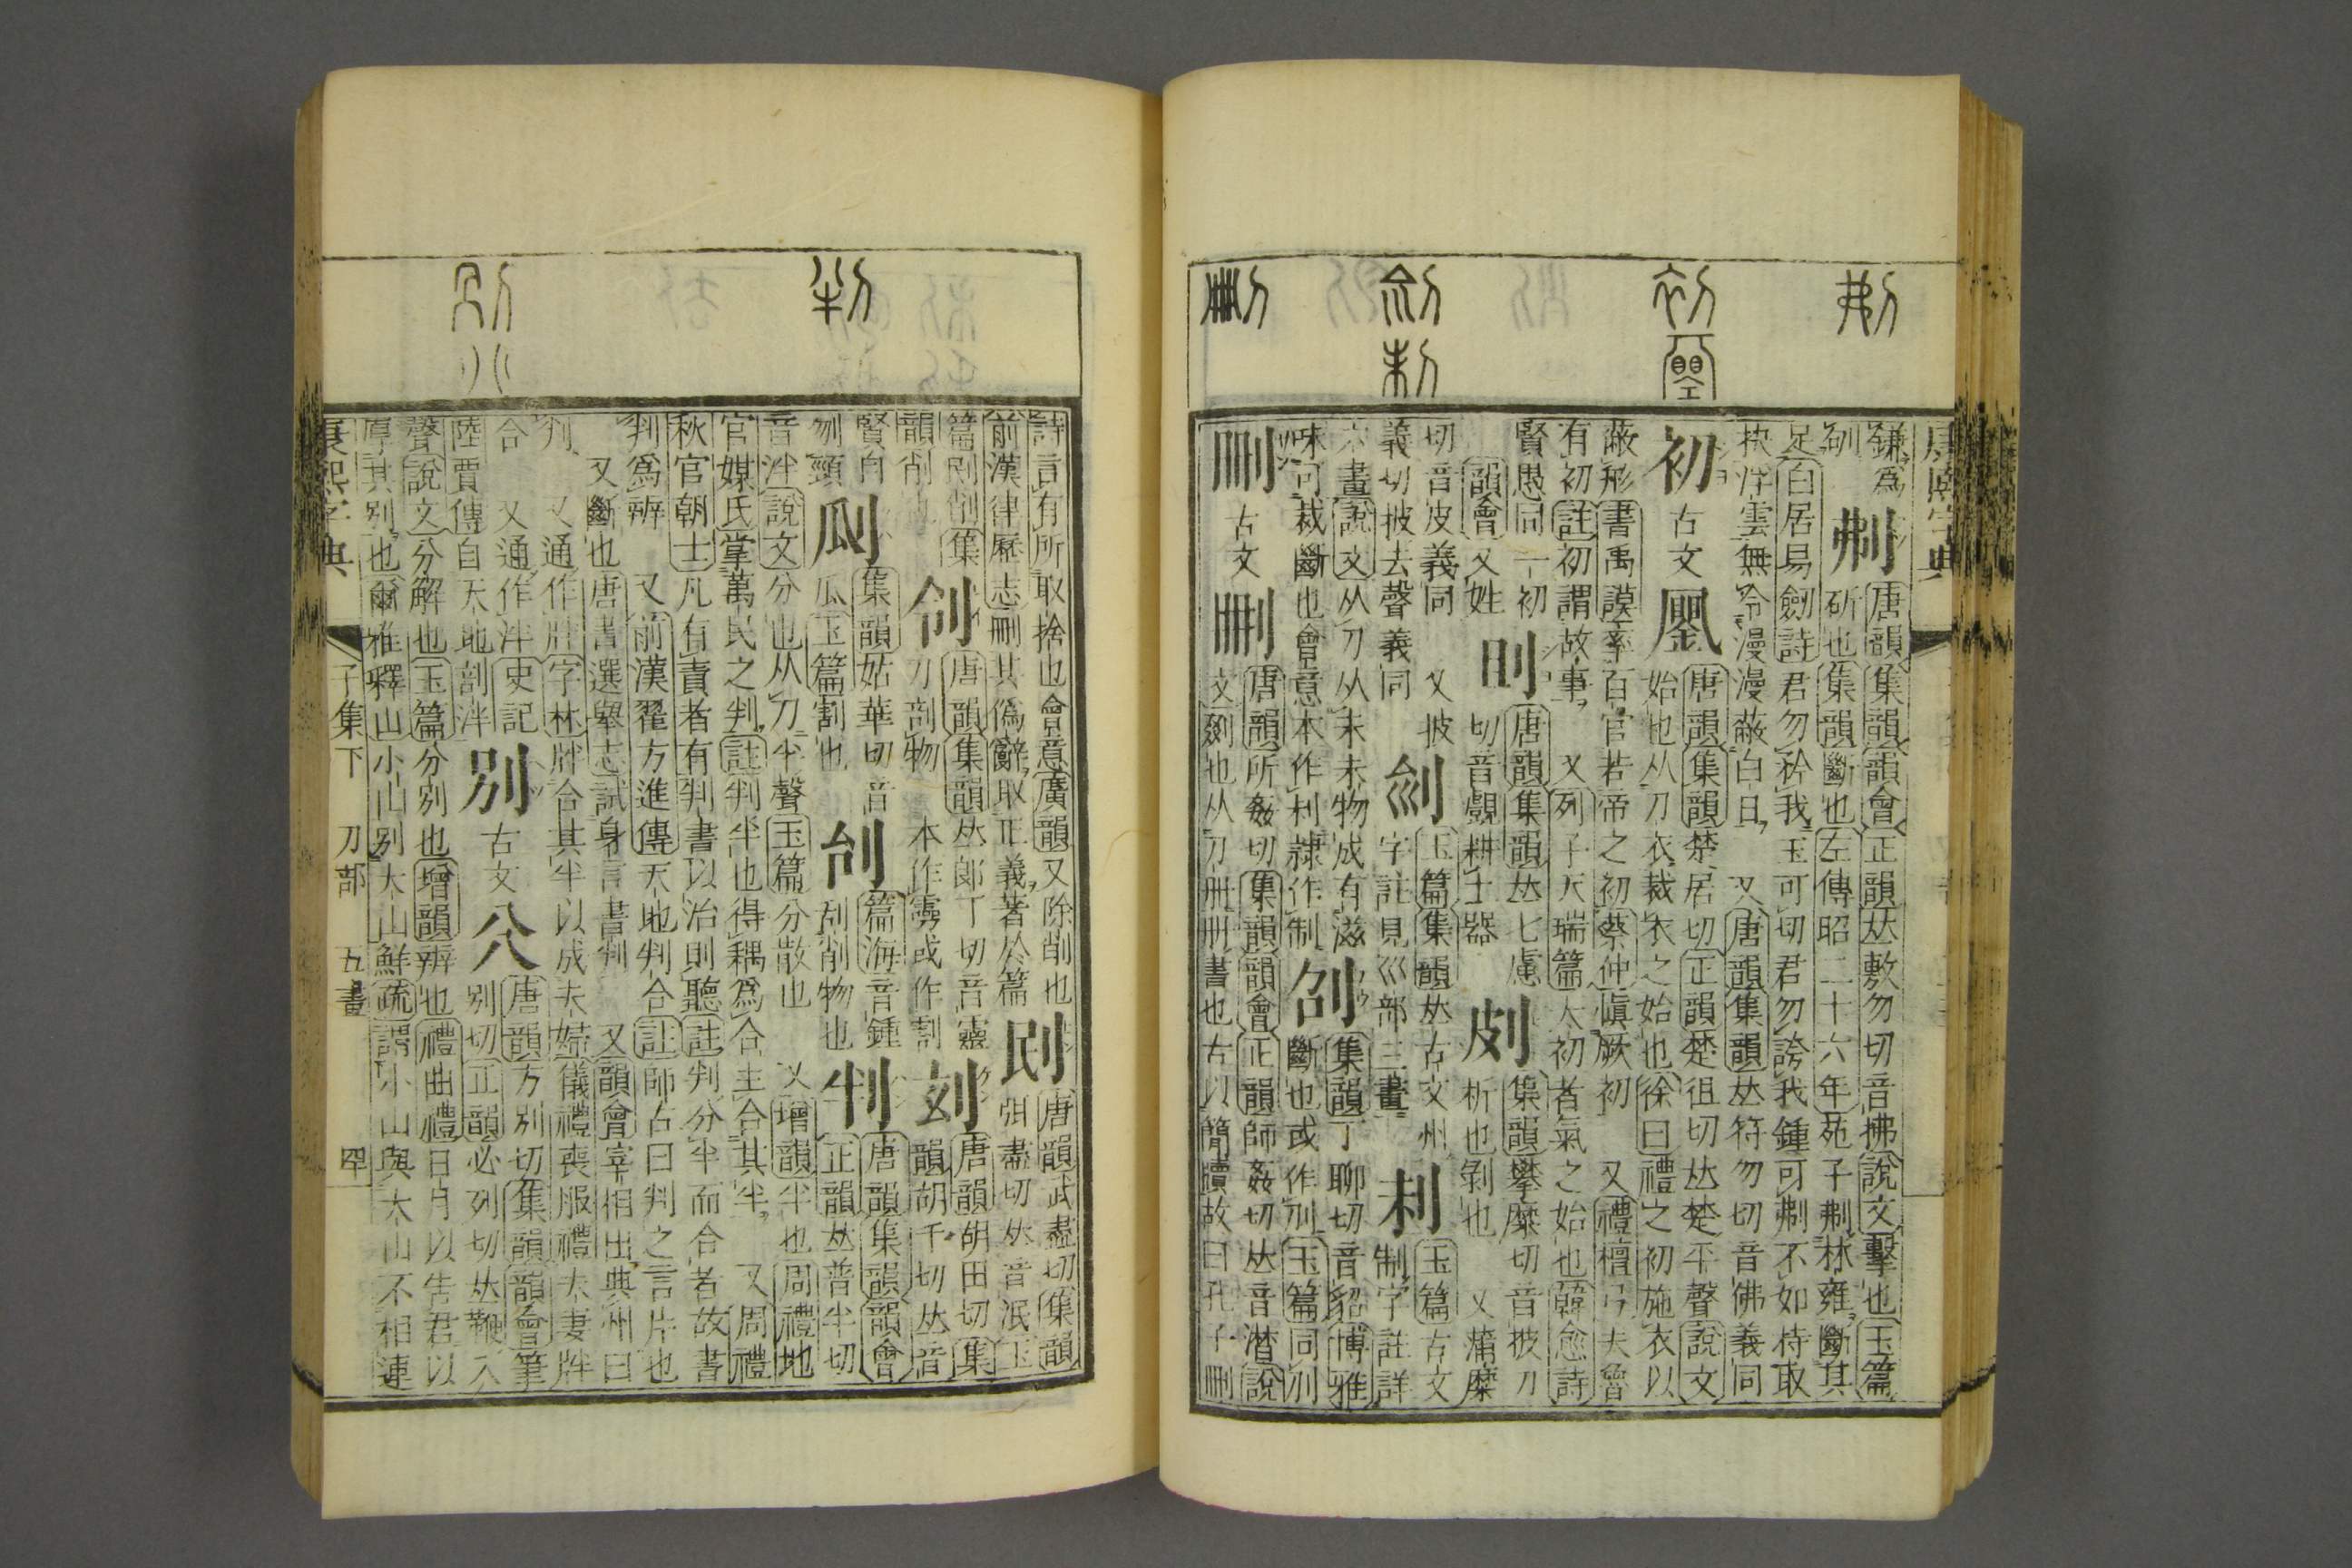 康熙字典
鎌爲
釗
刜
唐韻集韻韻會正韻𠀤敷勿切音拂說文擊也玉篇
斫也集韻斷也左傳昭二十六年苑子刜林雍斷其
足白居易劒詩君勿矜我玉可切君勿誇我鍾可刜不如持取
抉浮雲無令漫漫蔽白日 又唐韻集韻𠀤符勿切音佛義同
初 古文
唐韻集韻楚居切正韻楚徂切𠀤楚平聲說文
始也从刀衣裁衣之始也徐曰禮之初施衣以
蔽形書禹謨率百官若帝之初蔡仲愼厥初 又禮檀弓夫魯
有初註初謂故事 又列子天瑞篇太初者氣之始也韓愈詩
賢愚同一初
韻會又姓
刞
唐韻集韻𠀤七慮
切音覰耕土器
㓟
集韻攀糜切音披刀
析也剝也 又蒲糜
切音皮義同 又披
義切披去聲義同
玉篇集韻𠀤古文州
字註見巛部三畫
玉篇古文
制字註詳
六畫說文从刀从未未物成有滋
味可裁斷也會意本作𠛐隷作制
集韻丁聊切音貂博雅
斷也或作刐玉篇同刐
刪 古文
唐韻所姦切集韻韻會正韻師姦切𠀤音潸說
文剟也从刀冊冊書也古以簡牘故曰孔子刪
詩言有所取捨也會意廣韻又除削也
前漢律歷志刪其僞辭取正義著於篇
刡
唐韻武盡切集韻
弭盡切𠀤音泯玉
篇刷削集
韻削也
唐韻集韻𠀤郎丁切音靈
刀剖物 本作
唐韻胡田切集
韻胡千切𠀤音
賢自
刎頸
㓡
集韻姑華切音
瓜玉篇割也
刣
篇海音鍾
刮削物也
判
唐韻集韻韻會
正韻𠀤普半切
音泮說文分也从刀半聲玉篇分散也 又增韻半也周禮地
官媒氏掌萬民之判註判半也得耦爲合主合其半 又周禮
秋官朝士凡有責者有判書以治則聽註判分半而合者故書
判爲辨 又前漢翟方進傳天地判合註師古曰判之言片也
又斷也唐書選舉志試身言書判 又韻會宰相出典州曰
判 又通作牉字林牉合其半以成夫婦儀禮喪服禮夫妻牉
合 又通作泮史記
陸賈傳自天地剖泮
別 古文 𠔁
唐韻方別切集韻韻會筆
別切正韻必列切𠀤鞭入
聲說文分解也玉篇分別也增韻辨也禮曲禮日月以告君以
厚其別也爾雅釋山小山別大山鮮疏謂小山與大山不相連
康熙字典 子集下 刀部 五畫 四